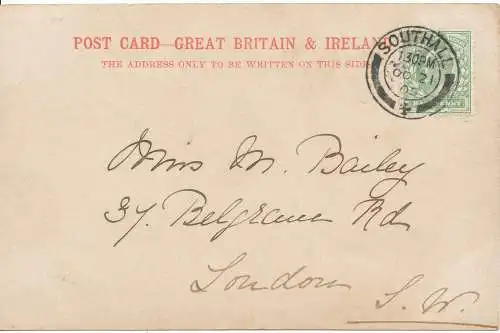 POST CARD—GREAT BRITAIN & IRELAND
THE ADDRESS ONLY TO BE WRITTEN ON THIS SIDE
SOUTHALL
1.30PM
21
Miss M. Bailey
37. Belgrave Rd
London
S. W.